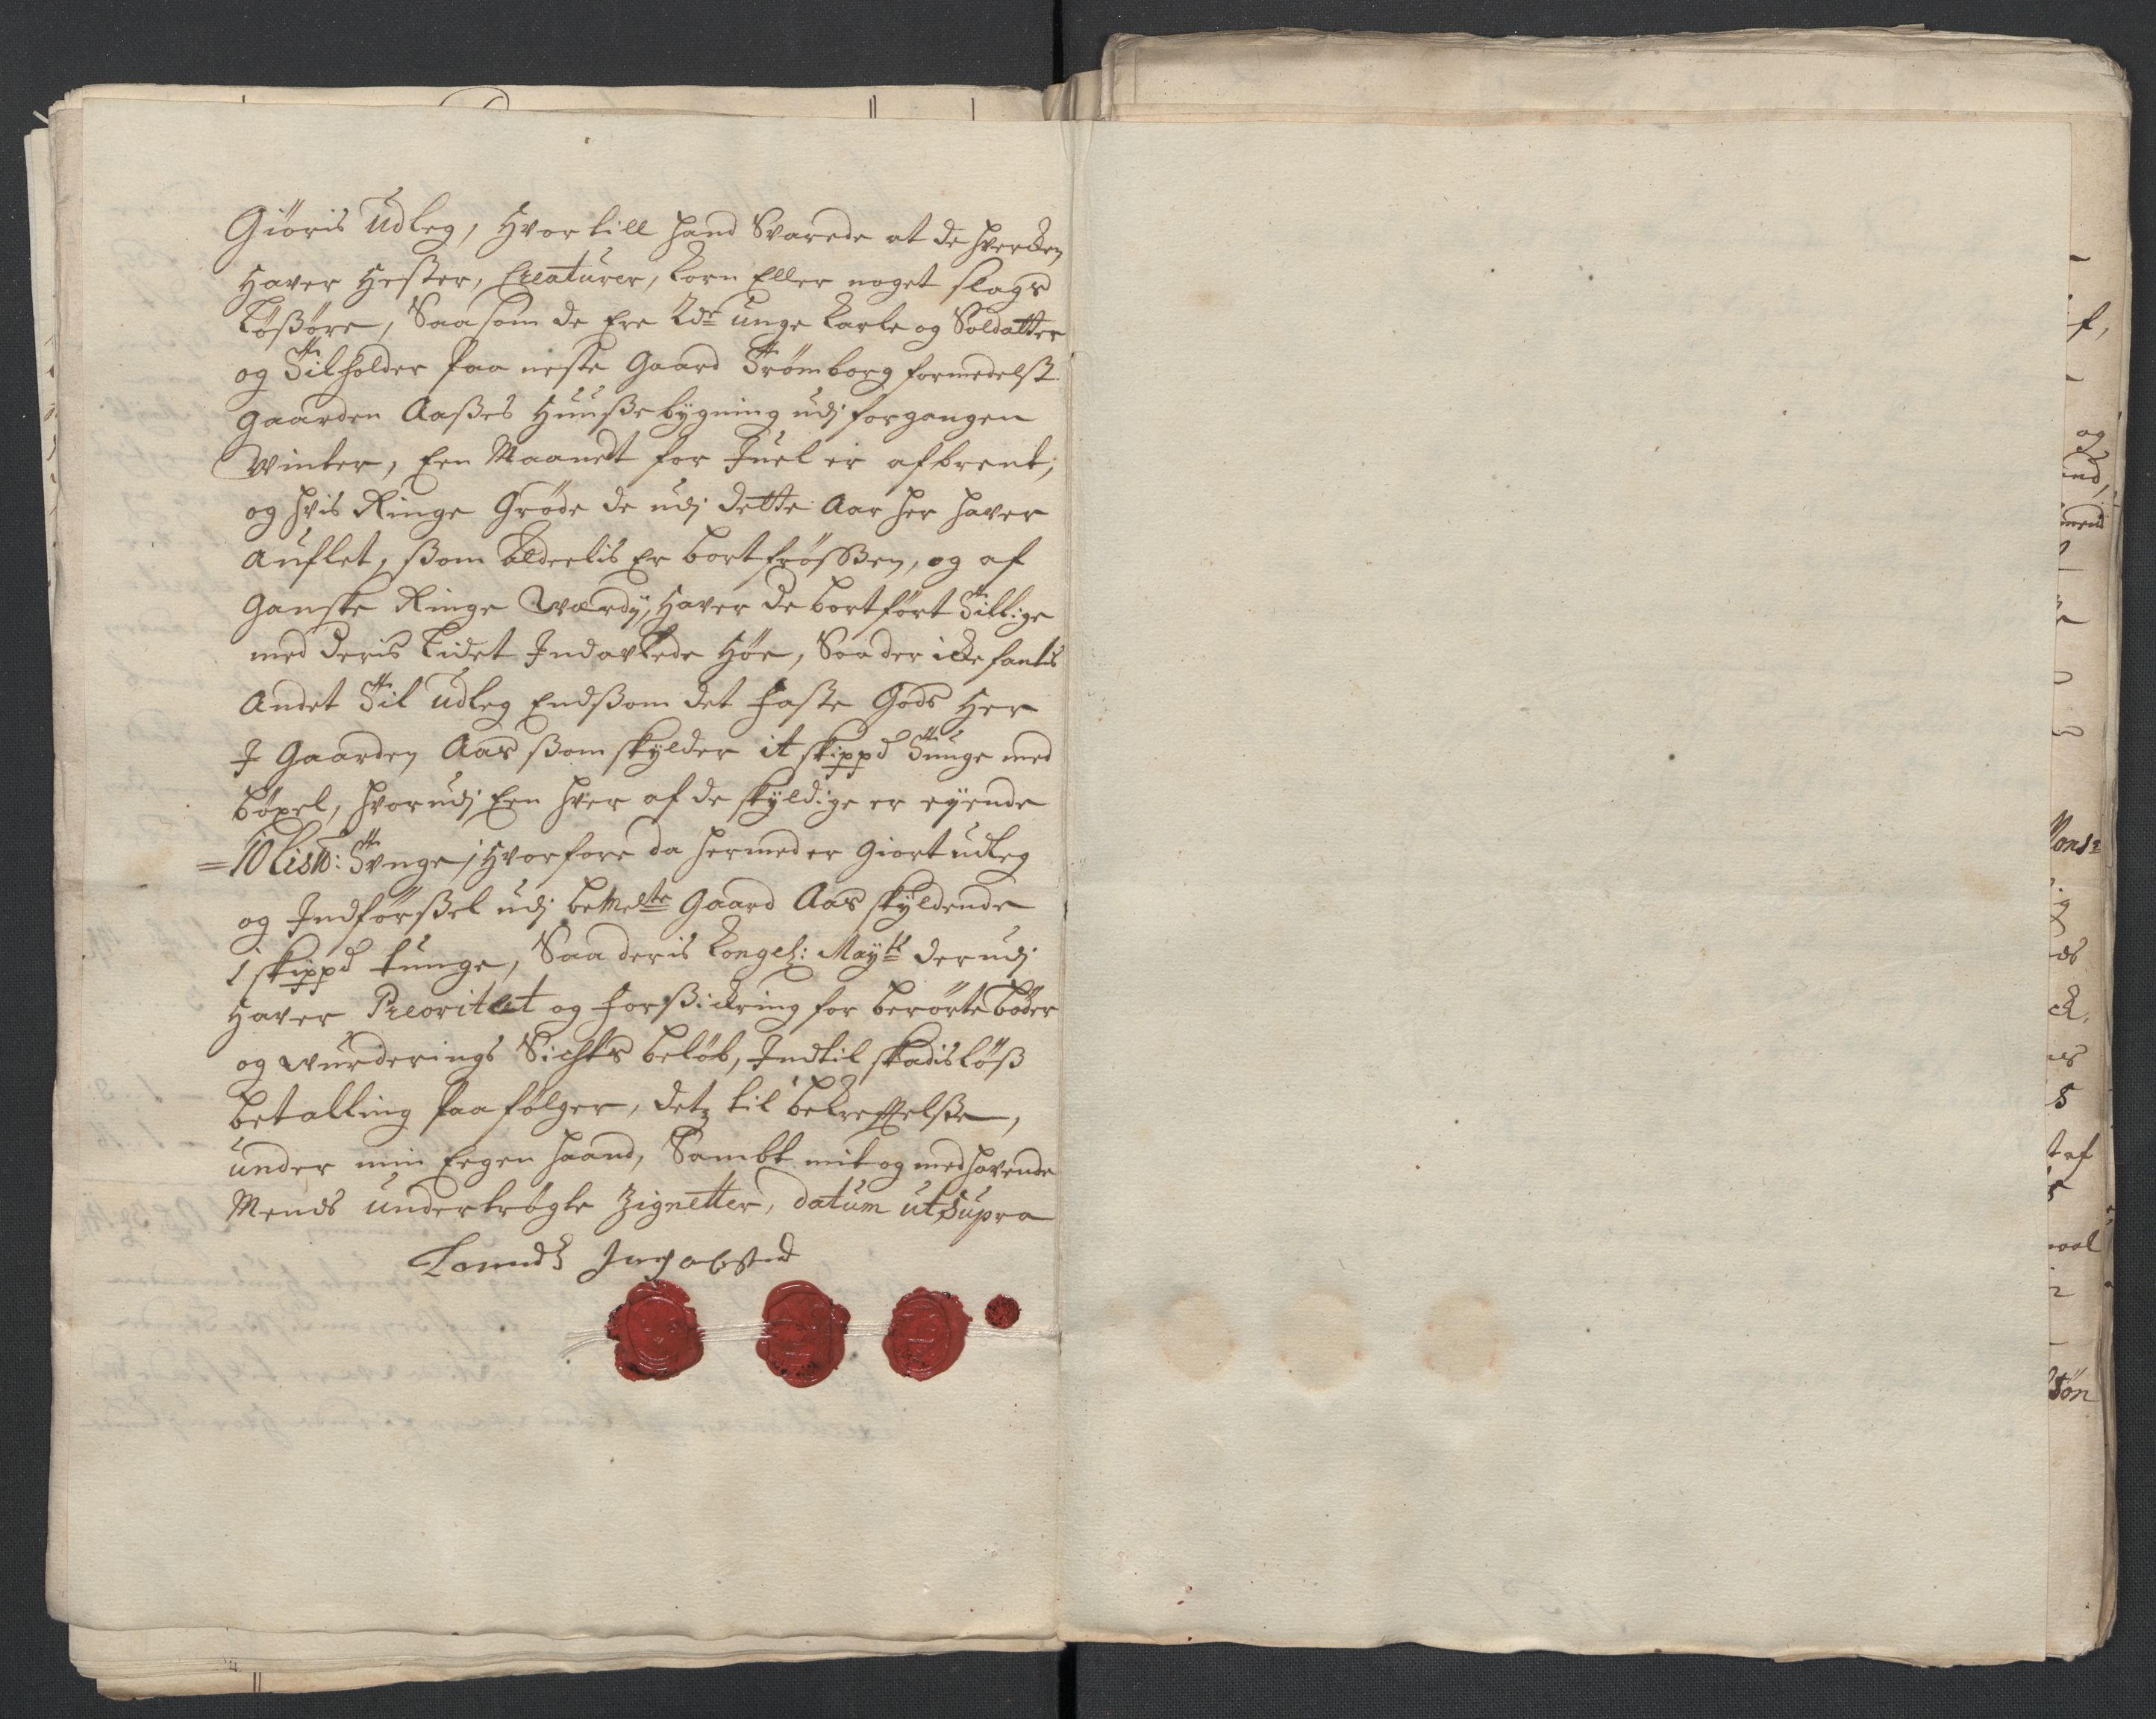 Giöris Udleg, Hvortill hand Svarede at de hvercken
Haver Hester, Creaturer, Korn Eller noget slags
Løßöre, Saasom de Ere 2de unge Karle og Soldatter
og Tilholder paa neste Gaard Strömborg formedelst
gaarden Aaßes Huußebygning udj forgangen
Winter, Een Maanedt for Juel er afbrent,
og hvis Ringe Gröde de udj dette Aar her haver
Auflet, ßom alderlis Er bortfrösßen, og af
Ganske Ringe Værdj, Haver de bortfört Tillige
med deris Lidet Indavlede Höe, Saa der icke fantis
Andet Til Udleg Endßom det faste Gods Her
J Gaarden Aas ßom skylder it skippd Tunge med
böxel, hvorudj Een hver af de skyldige er eyende
10 Lis℔: Tunge, Hvorfore da hermed er Giort udleg
og Indförßel udj bemelte Gaard Aas skyldende
1 skippd tunge, Saa deris Kongel: Maytt derudj
Haver Preoritet og forßickring for berörte böder
og wurderings Sichts belöb, Indtil skadislöß
betalling paafölger, detz til bekreftelße,
under min Eegen haand, Sambt mit og medhavende
Mends undertrögte Zignetter, datum ut Supra